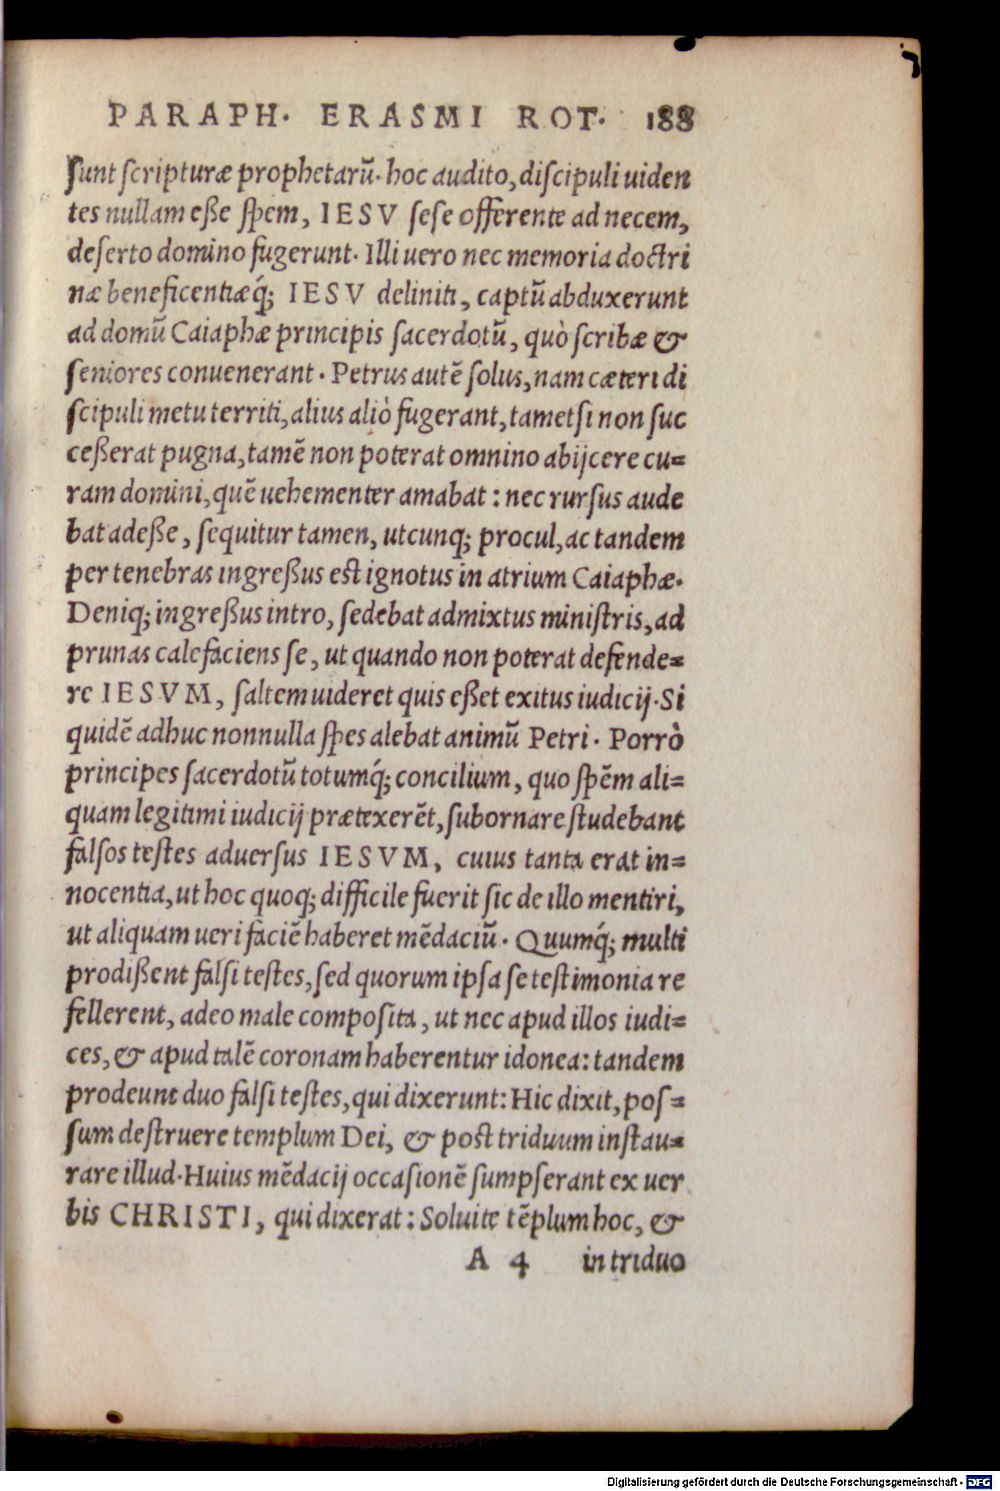 PARAPH. ERASMI ROT. 188
sunt scripturæ prophetarū. hoc audito, discipuli uiden
tes nullam eße spem, IESV sese offerente ad necem,
deserto domino fugerunt. Illi uero nec memoria doctri
næ beneficentiæq́; IESV deliniti, captū abduxerunt
ad domū Caiaphæ principis sacerdotū, quò scribæ &
seniores conuenerant. Petrus autē solus, nam cæteri di
scipuli metu territi, alius aliò fugerant, tametsi non suc
ceßerat pugna, tamē non poterat omnino abijcere cu=
ram domini, quē uehementer amabat: nec rursus aude
bat adeße, sequitur tamen, utcunq; procul, ac tandem
per tenebras ingreßus est ignotus in atrium Caiaphæ.
Deniq; ingreßus intro, sedebat admixtus ministris, ad
prunas calefaciens se, ut quando non poterat defende=
re IESVM, saltem uideret quis eßet exitus iudicij. Si
quidē adhuc nonnulla spes alebat animū Petri. Porrò
principes sacerdotū totumq́; concilium, quo spēm ali=
quam legitimi iudicij prætexerēt, subornare studebant
falsos testes aduersus IESVM, cuius tanta erat in=
nocentia, ut hoc quoq; difficile fuerit sic de illo mentiri,
ut aliquam ueri faciē haberet mēdaciū. Quumq́; multi
prodißent falsi testes, sed quorum ipsa se testimonia re
fellerent, adeo male composita, ut nec apud illos iudi=
ces, & apud talē coronam haberentur idonea: tandem
prodeunt duo falsi testes, qui dixerunt: Hic dixit, pos=
sum destruere templum Dei, & post triduum instau=
rare illud. Huius mēdacij occasionē sumpserant ex uer
bis CHRISTI, qui dixerat: Soluite tēplum hoc, &
A 4 in triduo
Digitalisierung gefördert durch die Deutsche Forschungsgemeinschaft - DFG